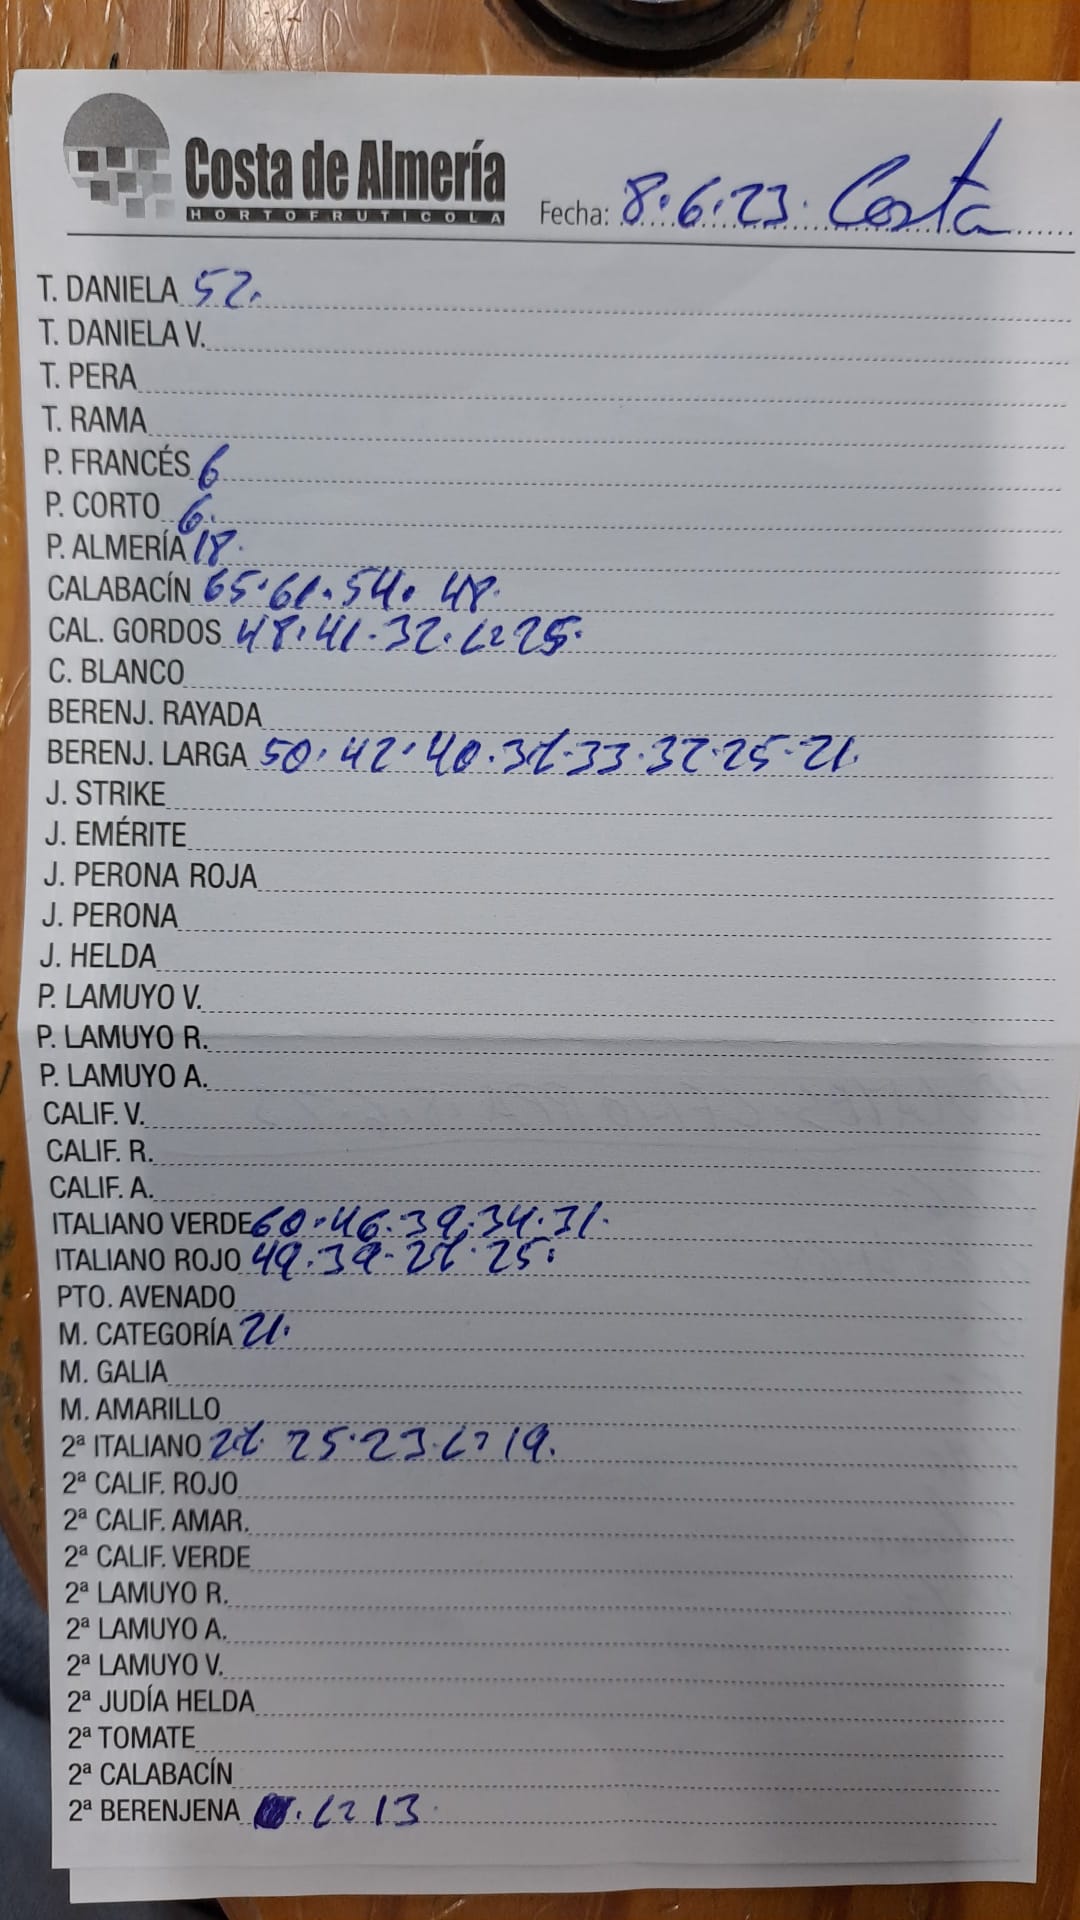 Costa de Almería
HORTOFRUTICOLA
Fecha: 8.6.23. Costa
T. DANIELA 52.
T. DANIELA V.
T. PERA
T. RAMA
P. FRANCÉS 6
P. CORTO 6.
P. ALMERÍA 18.
CALABACÍN 65.61.54. 48.
CAL. GORDOS 48.41.32. 25.
C. BLANCO
BERENJ. RAYADA
BERENJ. LARGA 50.42.40.37.33.32.25.21.
J. STRIKE
J. EMÉRITE
J. PERONA ROJA
J. PERONA
J. HELDA
P. LAMUYO V.
P. LAMUYO R.
P. LAMUYO A.
CALIF. V.
CALIF. R.
CALIF. A.
ITALIANO VERDE 60.46.39.34.31.
ITALIANO ROJO 49.39.27.25.
PTO. AVENADO
M. CATEGORÍA 21.
M. GALIA
M. AMARILLO
2ª ITALIANO 27. 25.23. 19.
2ª CALIF. ROJO
2ª CALIF. AMAR.
2ª CALIF. VERDE
2ª LAMUYO R.
2ª LAMUYO A.
2ª LAMUYO V.
2ª JUDÍA HELDA
2ª TOMATE
2ª CALABACÍN
2ª BERENJENA 13.